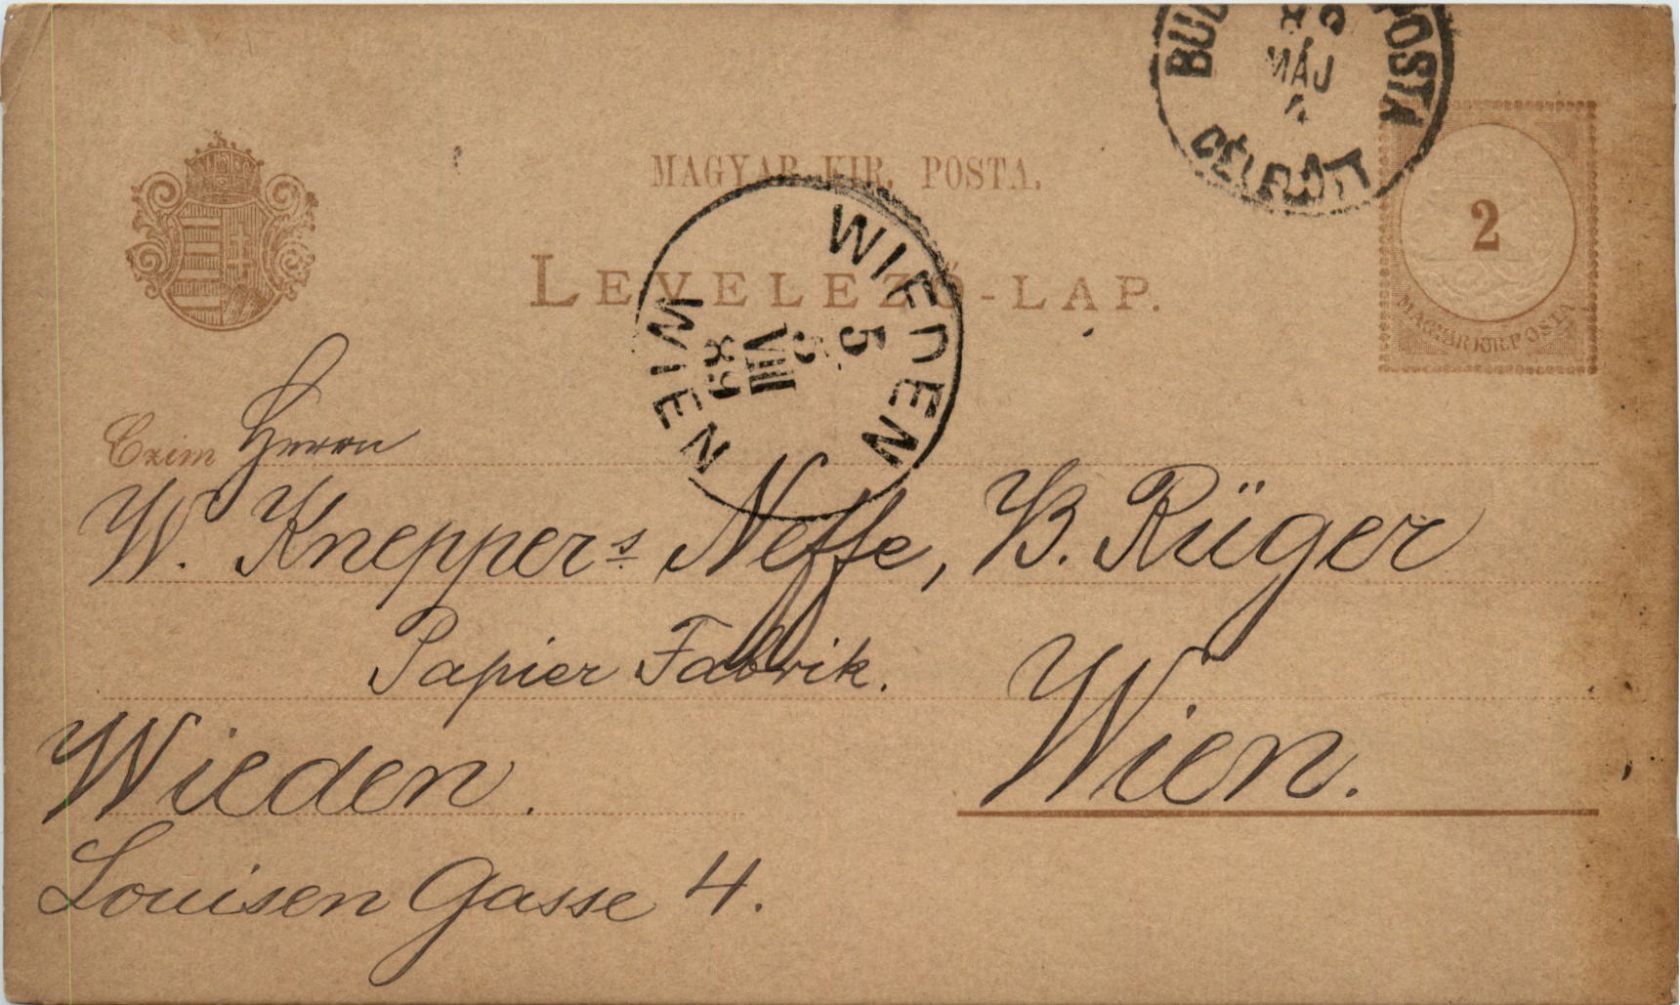 BUD POSTA
89
MÁJ
4
DÉLELŐTT
MAGYAR KIR. POSTA.
2
MAGYAR KIR. POSTA
LEVELEZŐ-LAP.
WIEDEN
5
5
VIII
89
WIEN
Czim Herrn
W. Kneppers Neffe, B. Rüger
Papier Fabrik.
Wieden. Wien.
Louisen Gasse 4.